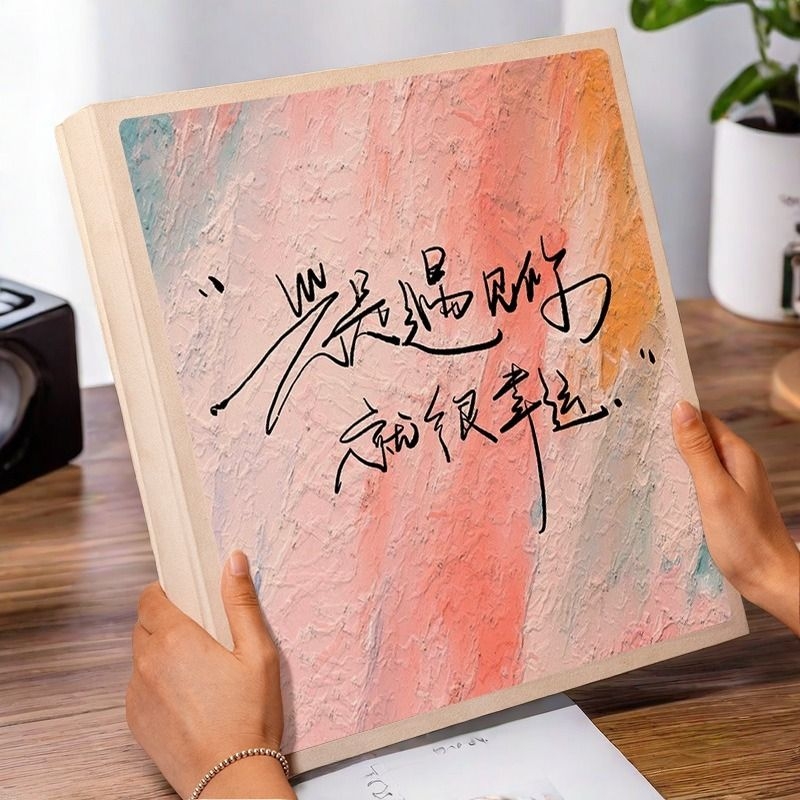 "光是遇见你
就很幸运."